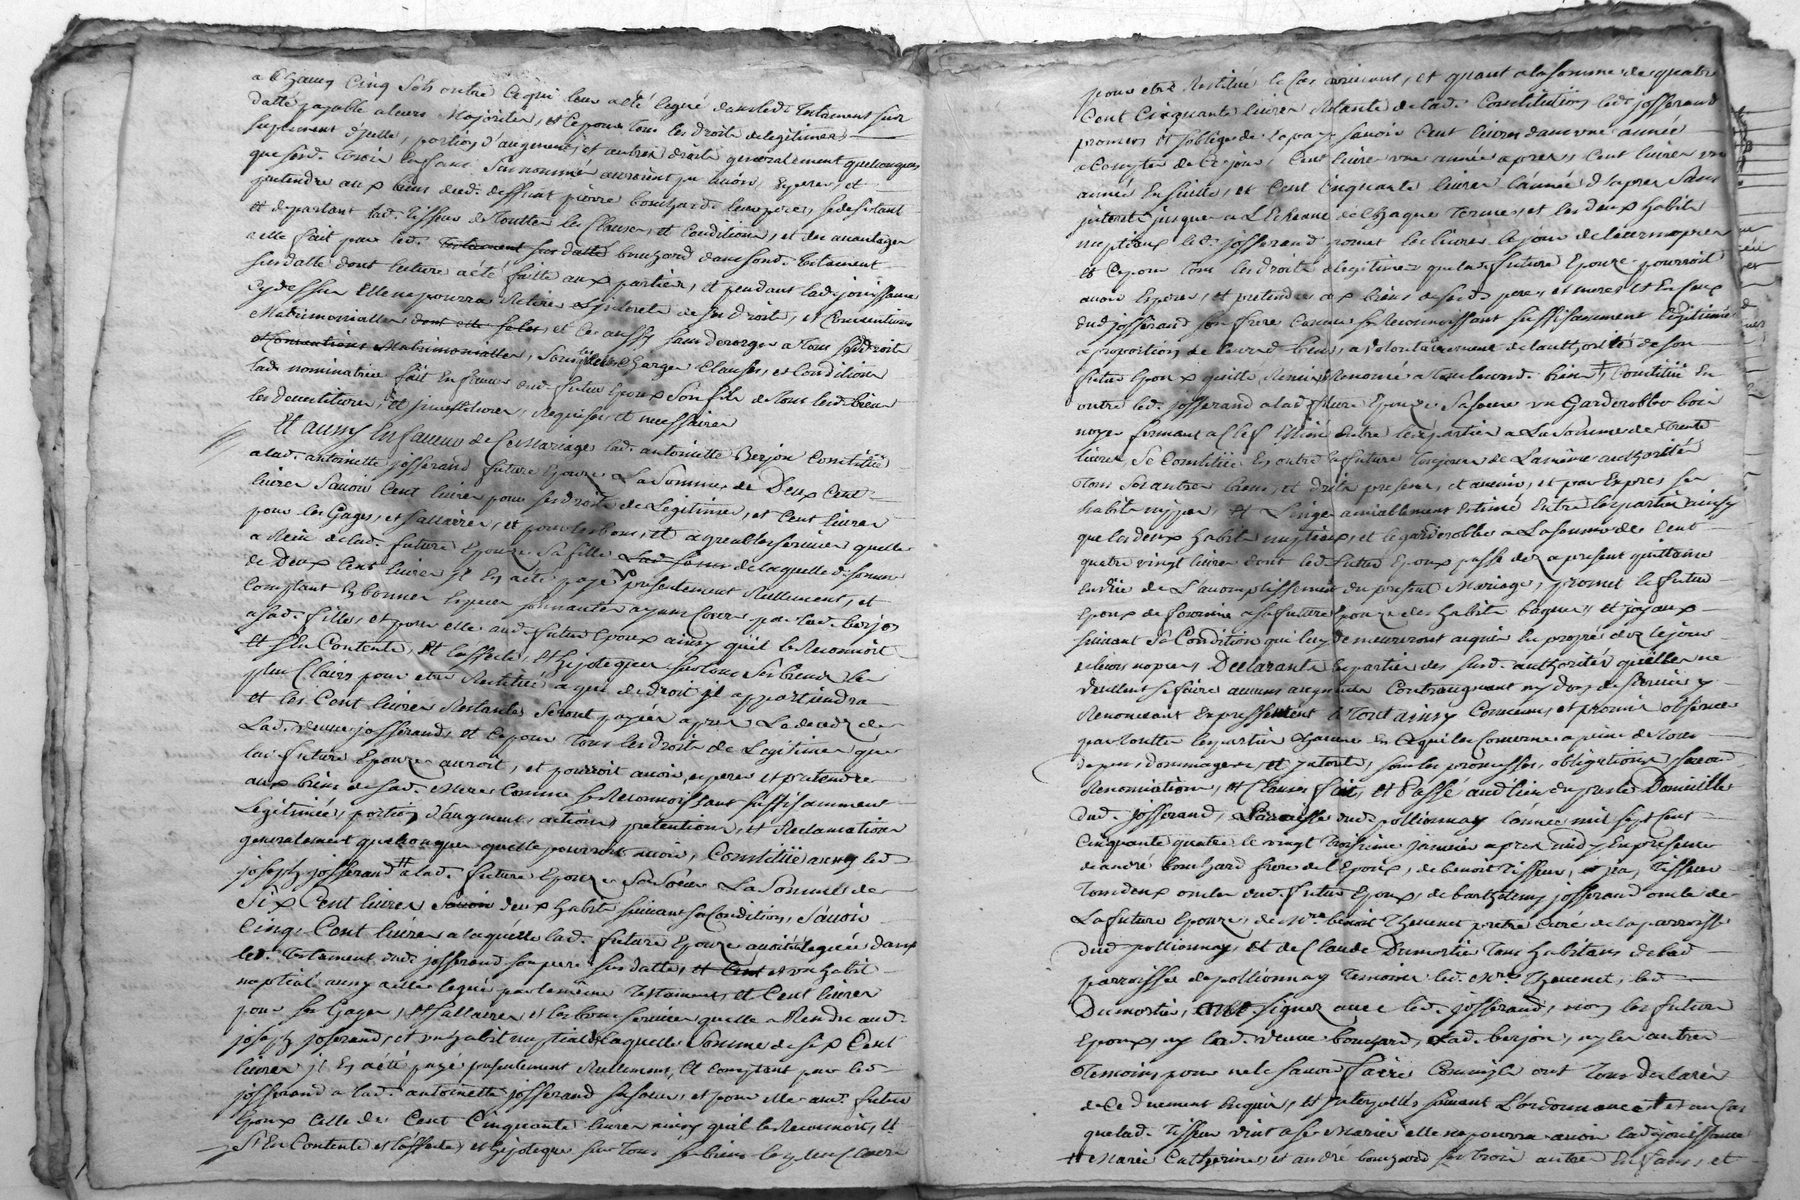 a Chacun Cinq sols outre Ce qui leur a été legué dans led. testament sur
datté payable a leurs Majorités, et Ce pour tous les droits de legitimes
suplement d'icelle, portion d'augment, et autres droits generalement quelconques
que lesd. trois enfans sus nommé auroient pu avoir, esperer, et
pretendre aux biens dud. deffunt pierre bouchard leur pere, se desistant
et departant lad. tisseur de toutte les Clauses, et Conditions, et des avantages
a elle fait par led. testament sus datté bouchard dans sond. testament
sus datté dont lecture a été faitte aux parties, et pendant lad. jouissance
Cy dessus elle ne pourra retirer les interets de ses droits, et Conventions
Matrimonialles et Ce aussy sans deroger a tous sesd. droits
et Conventions Matrimonialles, sous les charges Clauses, et Conditions
lad. nominatrice fait en faveur dud. futur Epoux son fils de tous lesd. biens
les devestitures, et investitures, requises et necessaires
Et aussy En faveur de Ce Mariage lad. antoinette Berjon Constitüe
a lad. antoinette josserand future Epouze La Somme de Deux Cent
livres Savoir Cent livres pour ses droits de Legitimes, et Cent livres
pour les Gages, et sallaires, et pour les bons, et agreables services quelle
a Rendu a lad. future Epouze sa fille de laquelle d. somme
de Deux Cent livres il En a été payé presentement Reellement, et
Comptant En bonnes Especes sonnantes ayant Cours par lad. berjon
a sad. fille, et pour elle aud. futur Epoux ainsy quil le Reconnoit
et s'En Contente, et l'affecte, et hipoteque sur tous ses biens les
plus Clairs pour etre Restitué a qui de droit il appartiendra
et les Cent livres Restantes seront payées apres Le deceds de
Lad. veuve josserand, et Ce pour tous les droits de Legitimes que
la future Epouze auroit, et pourroit avoir, esperer et pretendre
aux biens de sad. Mere Comme se Reconnoissant suffisamment
Legitimée, portion d'augment, actions, pretentions, et Reclamations
generalement quelconques quelle pourroit avoir, Constitüe aussy led.
joseph josserand a lad. future Epouze Sa Sœur La Somme de
Six Cent livres deux habits suivant sa Condition, Sçavoir
Cinq Cent livres a laquelle lad. future Epouze auroit été leguée dans
led. testament dud. josserand son pere sus datté, et Cent et un habit
nuptial aussy a elle legué par le même testament, et Cent livres
pour ses Gages, et sallaires, et les bons services quelle a Rendu aud.
joseph josserand, et un habit nuptial de laquelle Somme de six Cent
livres il En a été payé presentement Reellement, et Comptant par led.
josserand a lad. antoinette josserand sa sœur, et pour elle aud. futur
Epoux Celle de Cent Cinquante livres ainsy quil le Reconnoit, et
s'En Contente et l'affecte, et hipoteque sur tous ses biens les plus Clairs
pour etre Restitué le Cas avenant, et quant a la somme de quatre
Cent Cinquante livres Restante de lad. Constitution led. josserand
promet et s'oblige de la payer savoir Cent livres dans une année
a Compter de Ce jour, Cent livres une année apres, Cent livres une
année En suitte, et Cent Cinquante livres l'année d'apres Sans
interet jusques a L'Echeance de Chaque terme, et les deux habits
nuptiaux led. josserand promet les livrer le jour de leurs nopces
et Ce pour tous les droits de legitimes que lad. future Epouze pourroit
avoir esperer, et pretendre aux biens de sesd. pere, et mere et En Ceux
dud. josserand son frere Comme se Reconnoissant suffisament legitimée
a proportion de leursd. biens, a volontairement de l'authorité de son
futur Epoux quitté Remis et Renoncé a tous leursd. biens, Constitüe En
outre led. josserand a lad. future Epouze Sa sœur un Garderobbe bois
noyer fermant a Clef Estimé Entre les parties a La Somme de trente
livres, Se Constitüe En outre la future toujours de La même authorité
tous ses autres biens, et droits presens, et avenir, et par Exprés ses
habits nippes, et Linge amiablement Estimé Entre les parties ainsy
que les deux habits nuptiaux, et le garderobbe a La Somme de Cent
quatre vingt livres dont led. futur Epoux passe dez a present quittance
En vüe de L'accomplissement du present Mariage, promet le futur
Epoux de fournir a sa future Epouze des habits bagues, et joyaux
suivant sa Condition qui luy demeureront acquis En propre dez le jour
de leurs nopces Declarants les parties des susd. authorités quelles ne
veullent se faire aucuns augments Contraugment ny dons de survie y
Renoncant Expressément Et tout ainsy Convenu, et promis observer
par toutte les parties Chacune En Ce qui les Concerne a peine de tous
depens, dommages, et interets, sous les promesses, obligations, serment
Renonciations, et Clauses fait, et Passé aud. lieu du puits Domicille
dud. josserand, Parroisse dud. pollionnay l'année mil sept cent
Cinquante quatre le vingt troisieme janvier apres midy En presence
de andré bouchard frere de l'Epoux, de benoit tisseur, et jean tisseur
tous deux oncles dud. futur Epoux, de barthelemy josserand oncle de
La future Epouze, de Mre benoit thevenet pretre Curé de la parroisse
dud. pollionnay, et de Claude Dumortier tous habitans de lad.
parroisse de pollionnay temoins led. Mre thevenet, led.
Dumortier, ont signez avec led. josserand, non les futurs
Epoux, ny lad. veuve bouchard, lad. berjon, ny les autres
temoins pour ne le savoir faire Comm'ils ont tous declarés
de Ce duement Enquis, et interpellés suivant L'ordonnance et au Cas
que lad. tisseur vint a se Marier elle ne pourra avoir lad. jouissance
Marie Catherine, et andré bouchard ses trois autres Enfans, et